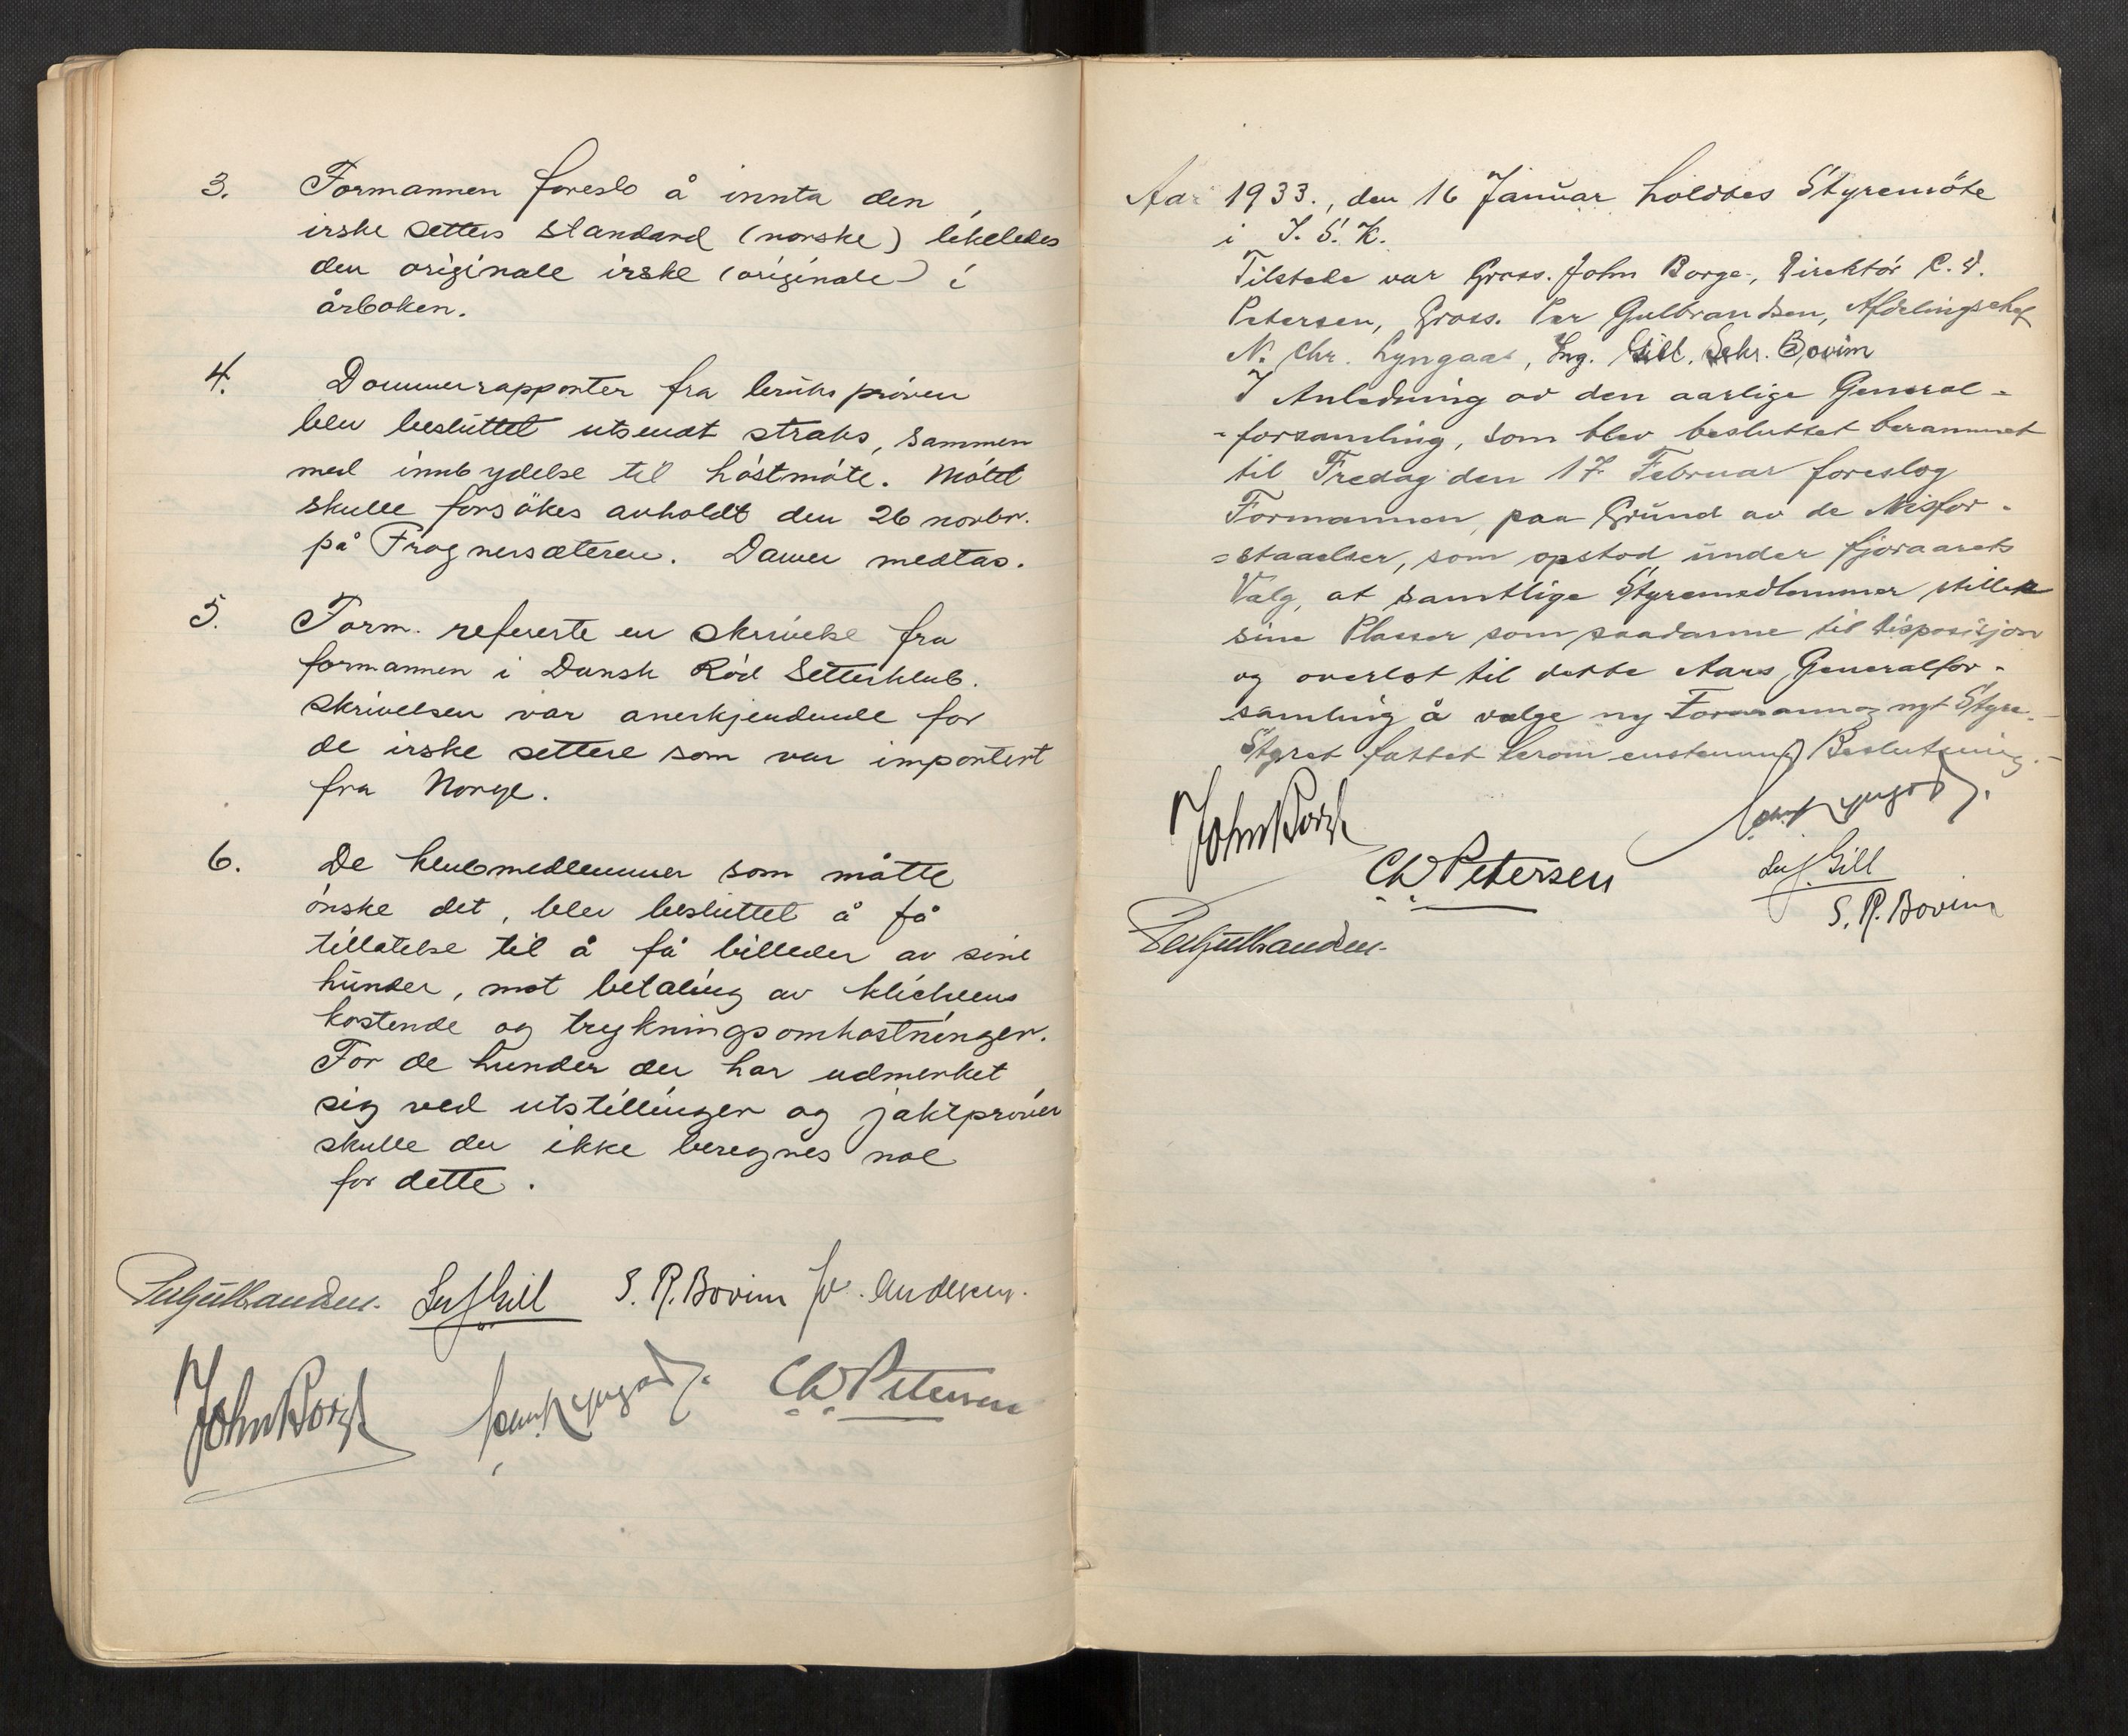 3. Formannen foreslo å innta den
irske setters standard (norske) likeledes
den originale irske (originale) i
årboken.
4. Dommerrapporter fra bruksprøven
blev besluttet utsendt straks, sammen
med innbydelse til höstmöte. Mötet
skulle forsökes avholdt den 26 novbr.
på Frognersæteren. Damer medtas.
5. Form. refererte en skrivelse fra
formannen i Dansk Röd Setterklub.
Skrivelsen var anerkjendende for
de irske settere som var importert
fra Norge.
6. De klubmedlemmer som måtte
önske det, blev besluttet å få
tillatelse til å få billeder av sine
hunder, mot betaling av klicheens
kostende og trykningsomkostninger.
For de hunder der har udmerket
sig ved utstillinger og jaktpröver
skulle der ikke beregnes noe
for dette.
Per Gulbrandsen. Leif Gill S. R. Bovim Jr. Andersen.
John Borge C W Petersen
Aar 1933., den 16 Januar holdtes Styremöte
i I. S. K.
Tilstede var Gross. John Borge, Direktör C. W.
Petersen, Gross. Per Gulbrandsen, Afdelingschef
N. Chr. Lyngaas, Ing. Gill, Sekr. Bovim
I Anledning av den aarlige General-
-forsamling, som blev besluttet berammet
til Fredag den 17 Februar foreslog
Formannen, paa Grund av de Misfor-
=staaelser, som opstod under fjoraarets
Valg, at samtlige Styremedlemmer stiller
sine Plasser som saadanne til disposisjon
og overlot til dette Aars Generalfor-
samling å vælge ny Formann og nyt Styre.-
Styret fattet herom enstemmig Beslutning.-
John Borge
C W Petersen Leif Gill
S. R. Bovim
Per Gulbrandsen.